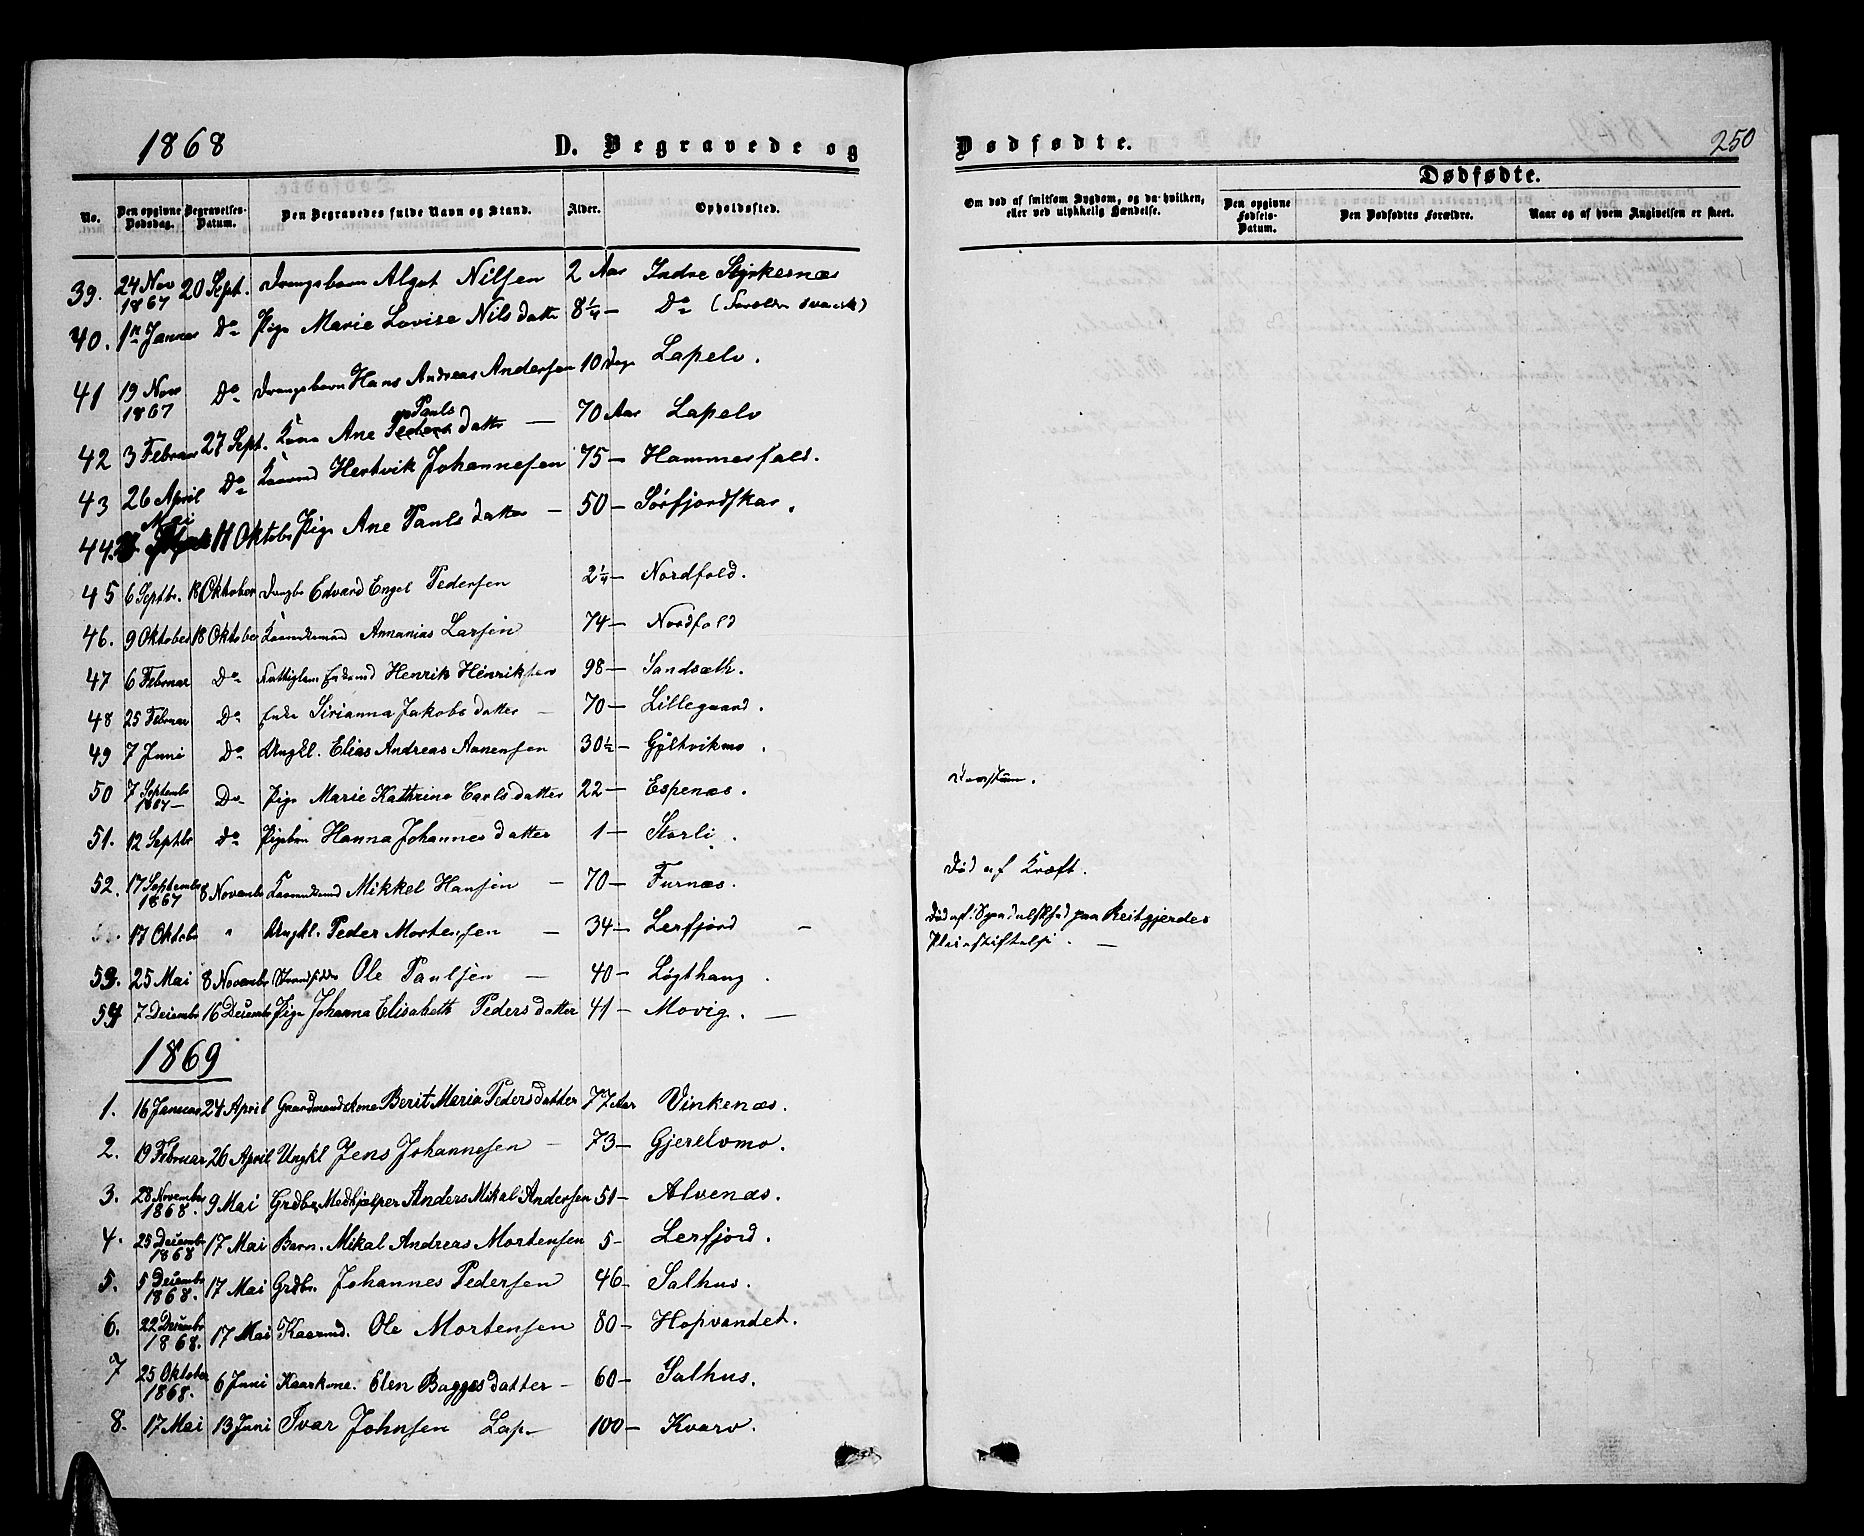 1868 D. Begravede og Dødfødte. 250
Dødfødte.
No. Den opgivne Dødsdag. Begravelses-Datum. Den Begravedes fulde Navn og Stand. Alder. Opholdssted. Om død af smitsom Sygdom, og da hvilken, eller ved ulykkelig Hændelse. Den opgivne Fødsels-Datum. Den Dødfødtes Forældre. Naar og af hvem Angivelsen er skeet.
39. 24 Nov 1867 20 Sept. Drengebarn Algot Nilsen 2 Aar Indre Styrkesnæs
40. 1n Januar Do Pige Marie Lovise Nilsdatter 8 1/4 — Do
41 19 Nov 1867 Do Drengebarn Hans Andreas Andersen 10 Dage Lapelv.
42 3 Februar 27 Sept. Kone Ane Pauls datter — 70 Aar Lapelv
43 26 April Do Kaarmd Hertvik Johannesen 75 — Hammerfald.
44. Mai 11 Oktobr Pige Ane Pauls datter — 50 — Sørfjordskar.
45 6 Septbr. 18 Oktober Drengb Edvard Engel Pedersen 2 1/4 — Nordfold.
46. 9 Oktober 18 Oktober Kaarmand Annanias Larsen 74 — Nordfold
47 6 Februar Do Fattiglem Enkemd Henrik Henriksen 98 — Sandsæth.
48 25 Februar Do Enke Sirianna Jakobsdatter — 70 — Lillegaard.
49 7 Juni Do Ungkl. Elias Andreas Aanensen 30 1/2 — Gyltvikmo.
50 7 Septembr 1867 — Do Pige Marie Kathrine Carlsdatter 22 — Espenæs.
51. 12 Septbr Do Pigebarn Hanna Johannesdatter 1 — Storli.
52. 17 Septembr 1867 8 Novembr Kaarmand Mikkel Hansen — 70 — Furnæs. Død af Kræft.
17 Oktobr " Ungkl. Peder Mortensen — 34 — Lerfjord — Død af Spedalskhed paa Reitgjerdes
Pleiestiftelse. —
53. 25 Mai 8 Novembr Ole Paulsen — 40 — Løgthaug.
54 7 Decembr 16 Decembr Pige Johanna Elisabeth Pedersdatter 41 — Movig. —
1869
1. 16 Januar 24 April Gaardmandskone Berit Maria Pedersdatter 77 Aar Vinkenæs.
2. 19 Februar 26 April Ungkl Jens Johannesen — 73 — Gjerelvmo.
3. 28 November 1868. 9 Mai Grdbr, Medhjælper Anders Mikal Andersen 51 — Alvenæs.
4. 25 Decembr 1868 17 Mai Barn. Mikal Andreas Mortensen 5 — Lerfjord.
5. 5 Decembr 1868. 17 Mai Grdbr. Johannes Pedersen 46 — Salhus.
6. 22 Decembr 1868. 17 Mai Kaarmd. Ole Mortensen 80 — Hopvandet.
7 25 Oktober 1868. 6 Juni Kaarkone. Elen Baggesdatter — 60 — Salhus.
8. 17 Mai 13 Juni Ivar Johnsen Lap — 100 — Kvarv.